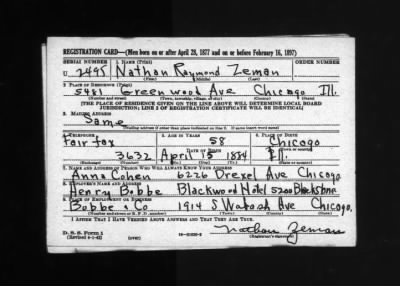 REGISTRATION CARD—(Men born on or after April 28, 1877 and on or before February 16, 1897)
SERIAL NUMBER 1. NAME (Print) ORDER NUMBER
U 2495 Nathan Raymond Zeman
(First) (Middle) (Last)
2. PLACE OF RESIDENCE (Print)
5481 Greenwood Ave Chicago Ill.
(Number and street) (Town, township, village, or city) (County) (State)
[THE PLACE OF RESIDENCE GIVEN ON THE LINE ABOVE WILL DETERMINE LOCAL BOARD
JURISDICTION; LINE 2 OF REGISTRATION CERTIFICATE WILL BE IDENTICAL]
3. MAILING ADDRESS
Same
[Mailing address if other than place indicated on line 2. If same insert word same]
4. TELEPHONE 5. AGE IN YEARS 6. PLACE OF BIRTH
Fairfax 58 Chicago
DATE OF BIRTH (Town or county)
3632 April 15 1884 Ill.
(Exchange) (Number) (Mo.) (Day) (Yr.) (State or country)
7. NAME AND ADDRESS OF PERSON WHO WILL ALWAYS KNOW YOUR ADDRESS
Anna Cohen 6226 Drexel Ave Chicago
8. EMPLOYER'S NAME AND ADDRESS
Henry Bobbe Blackwood Hotel 5200 Blackstone
9. PLACE OF EMPLOYMENT OR BUSINESS
Bobbe & Co 1914 S Wabash Ave Chicago
(Number and street or R. F. D. number) (Town) (County) (State)
I AFFIRM THAT I HAVE VERIFIED ABOVE ANSWERS AND THAT THEY ARE TRUE.
D. S. S. Form 1
(Revised 4-1-42) (over)
Nathan Zeman
(Registrant's signature)